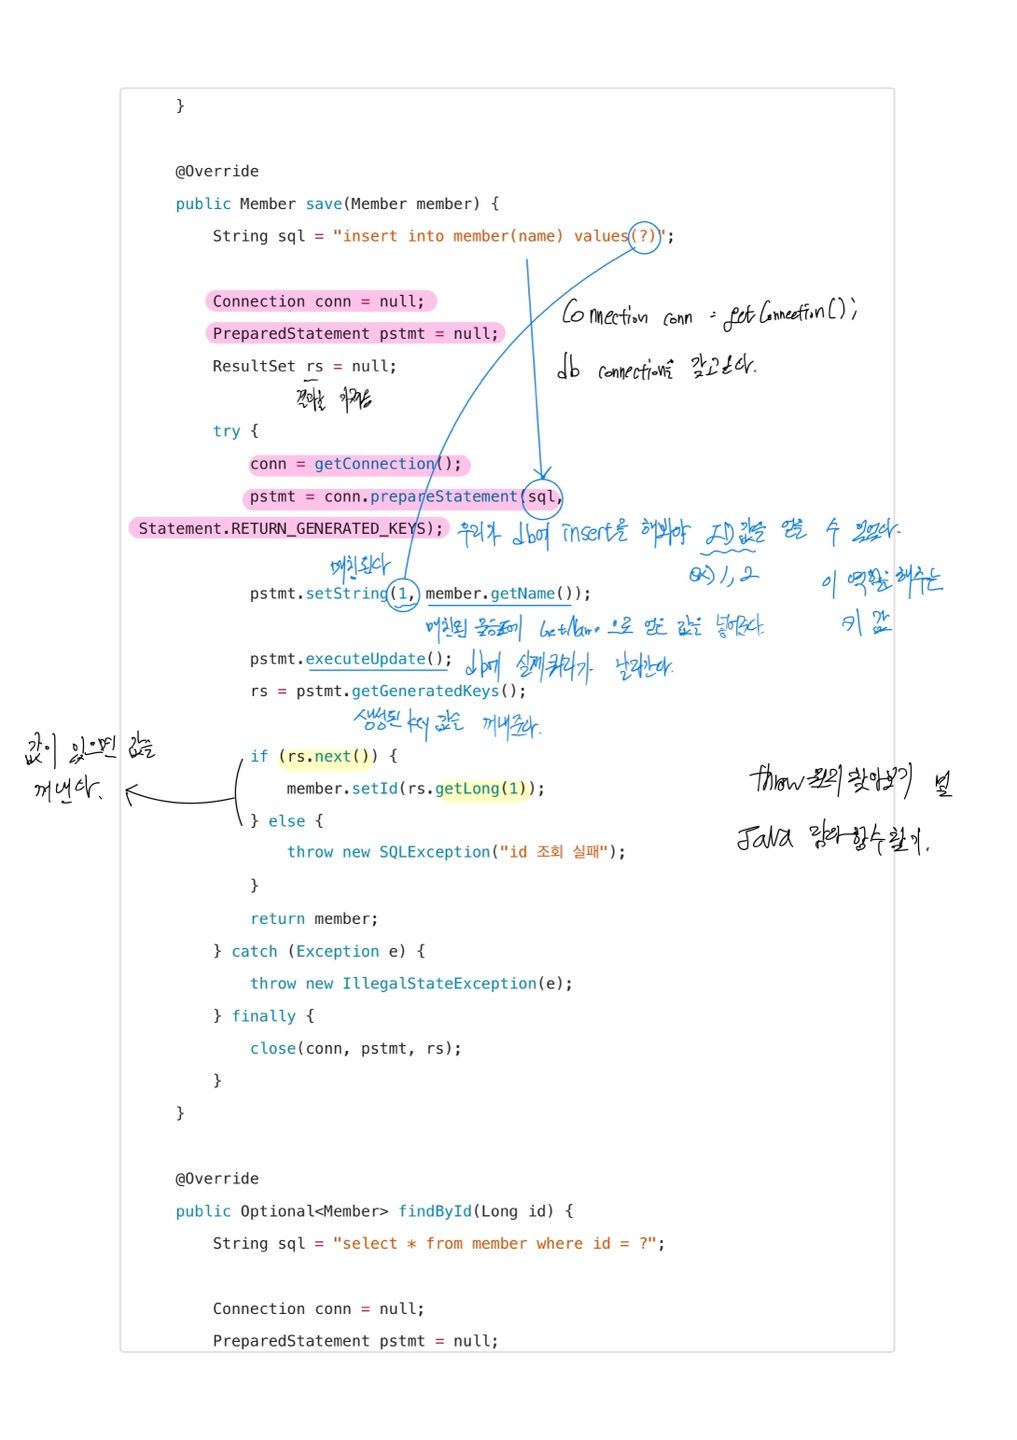 }
@Override
public Member save(Member member) {
String sql = "insert into member(name) values(?)";
Connection conn = null;
Connection conn = getConnection();
PreparedStatement pstmt = null;
ResultSet rs = null;
db connection을 갖고온다.
결과를
try {
conn = getConnection();
pstmt = conn.prepareStatement(sql,
Statement.RETURN_GENERATED_KEYS);
우리가 db에 insert을 해봐야 ID값을 얻을 수 있었다.
ex) 1, 2
이 역할을 해주는
키 값
매칭된다
pstmt.setString(1, member.getName());
매칭된 물음표에 GetName으로 얻은 값을 넣어준다.
pstmt.executeUpdate();
db에 실제쿼리가 날라간다.
rs = pstmt.getGeneratedKeys();
생성된 key 값을 꺼내준다.
값이 있으면 값을
꺼낸다.
if (rs.next()) {
member.setId(rs.getLong(1));
throw 원리 찾아보기 및
Java 람다함수 찾기.
} else {
throw new SQLException("id 조회 실패");
}
return member;
} catch (Exception e) {
throw new IllegalStateException(e);
} finally {
close(conn, pstmt, rs);
}
}
@Override
public Optional<Member> findById(Long id) {
String sql = "select * from member where id = ?";
Connection conn = null;
PreparedStatement pstmt = null;